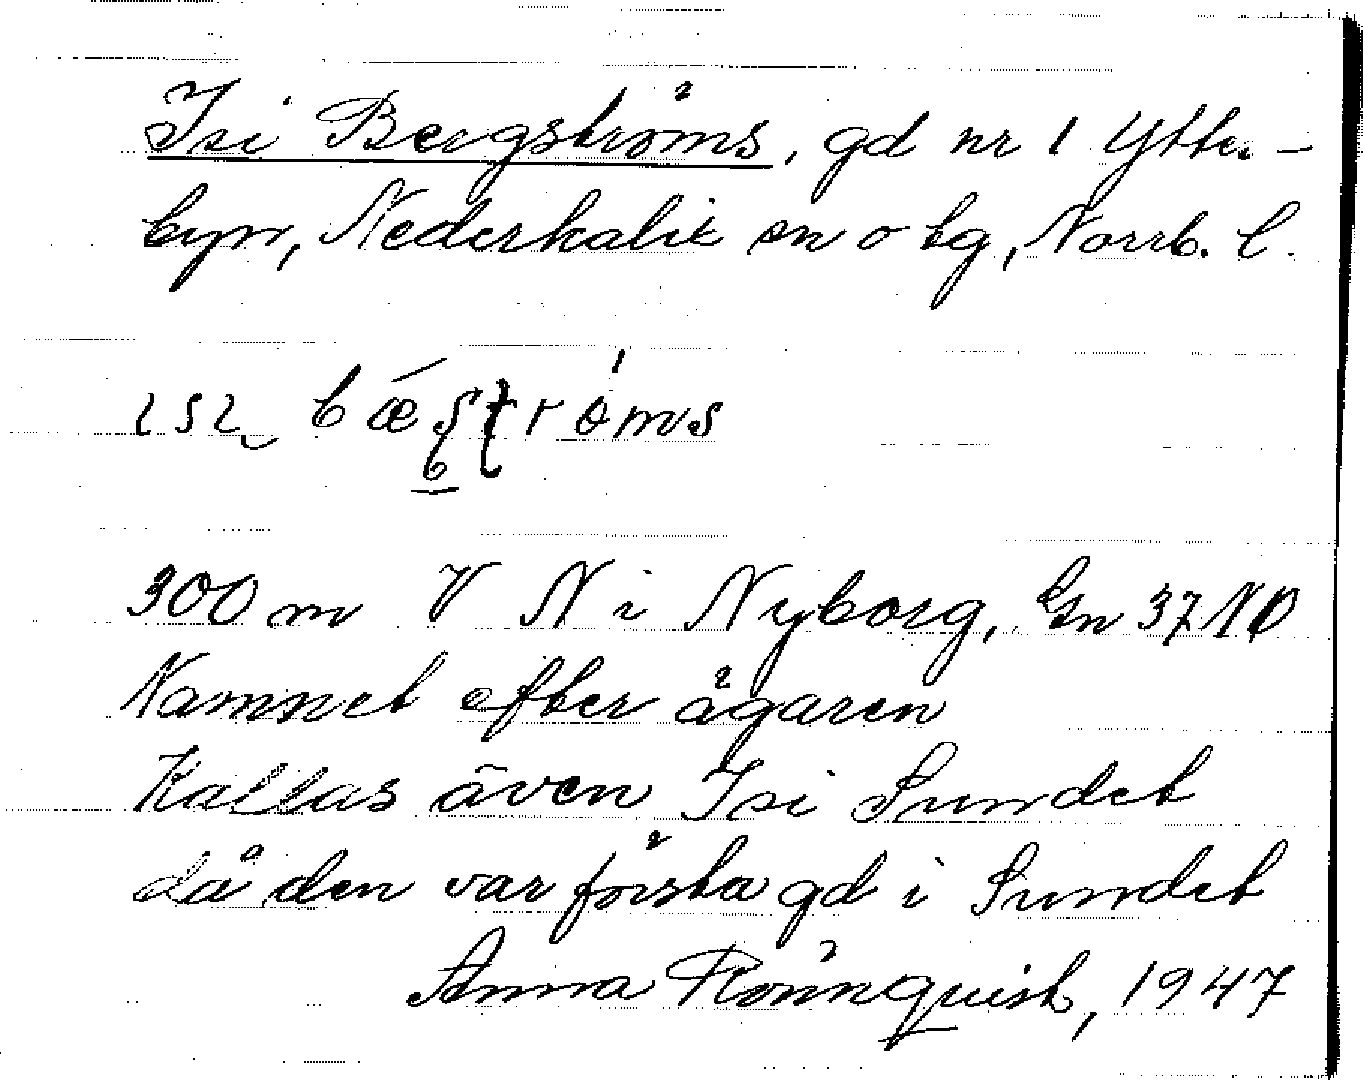 Isi Bergströms, gd nr 1 Ytter-
byn, Nederkalix sn o tg, Norrb. l.
300 m V N i Nyborg, Gn 37 NO
Namnet efter ägaren
Kallas även Isi Sundet
då den var första gd i Sundet
Anna Rönnquist, 1947